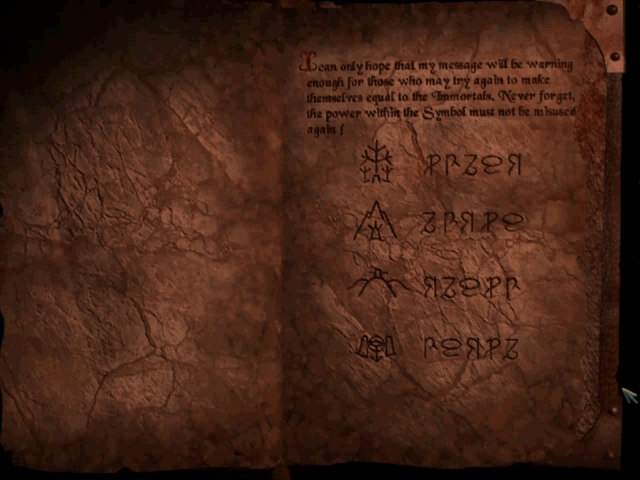 I can only hope that my message will be warning
enough for those who may try again to make
themselves equal to the Immortals. Never forget,
the power within the Symbol must not be misused
again !